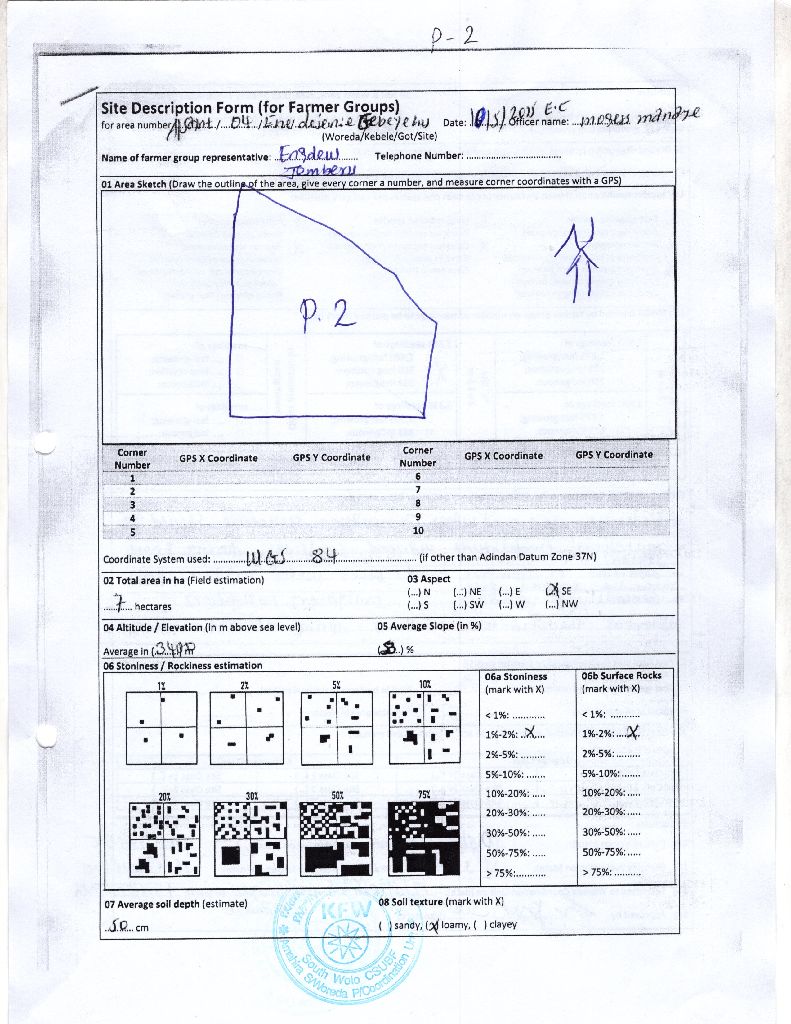 P-2
Site Description Form (for Farmer Groups)
for area number/ 04 / Date: /5/2011 E.C Officer name:
(Woreda/Kebele/Got/Site)
Name of farmer group representative: Engdew Telephone Number:
Jemberu
01 Area Sketch (Draw the outline of the area, give every corner a number, and measure corner coordinates with a GPS)
P. 2
Corner Number GPS X Coordinate GPS Y Coordinate Corner Number GPS X Coordinate GPS Y Coordinate
1 6
2 7
3 8
4 9
5 10
Coordinate System used: WGS 84 (if other than Adindan Datum Zone 37N)
02 Total area in ha (Field estimation) 03 Aspect
(...) N (...) NE (...) E (X) SE
7 hectares (...) S (...) SW (...) W (...) NW
04 Altitude / Elevation (in m above sea level) 05 Average Slope (in %)
Average in ( ) ( ) %
06 Stoniness / Rockiness estimation
1% 2% 5% 10%
20% 30% 50% 75%
06a Stoniness
(mark with X)
< 1%:
1%-2%: X
2%-5%:
5%-10%:
10%-20%:
20%-30%:
30%-50%:
50%-75%:
> 75%:
06b Surface Rocks
(mark with X)
< 1%:
1%-2%: X
2%-5%:
5%-10%:
10%-20%:
20%-30%:
30%-50%:
50%-75%:
> 75%:
07 Average soil depth (estimate) 08 Soil texture (mark with X)
50 cm ( ) sandy, (X) loamy, ( ) clayey
KFW
South Wolo CSUBF
Amahra S/Woreda P/Coordination